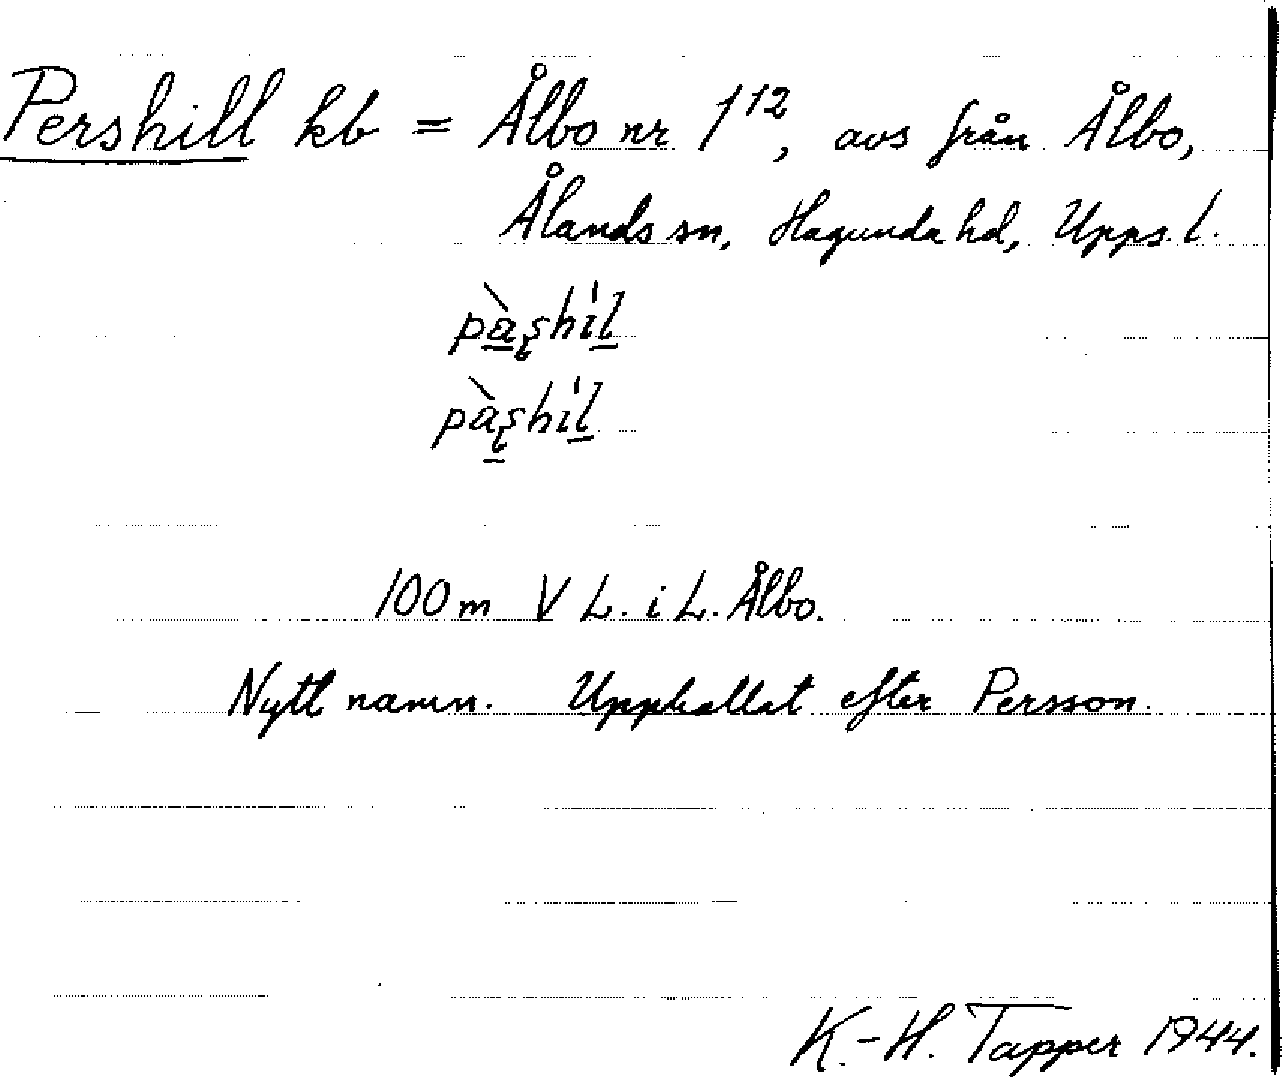 Pershill kb = Ålbo nr 1¹², avs från Ålbo,
Ålands sn, Hagunda hd, Upps. l.
pàʂhíl
pàʂhíl
100 m V L. i L. Ålbo.
Nytt namn. Uppkallat efter Persson.
K.-H. Tapper 1944.